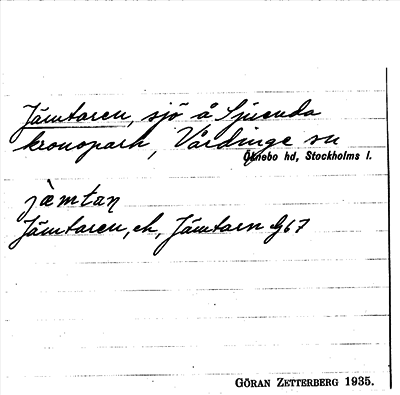 Jämtaren, sjö å Sjuenda
kronopark, Vårdinge sn
Öknebo hd, Stockholms l.
jæmtaṇ
Jämtaren, ek, Jämtarn G67
GÖRAN ZETTERBERG 1935.